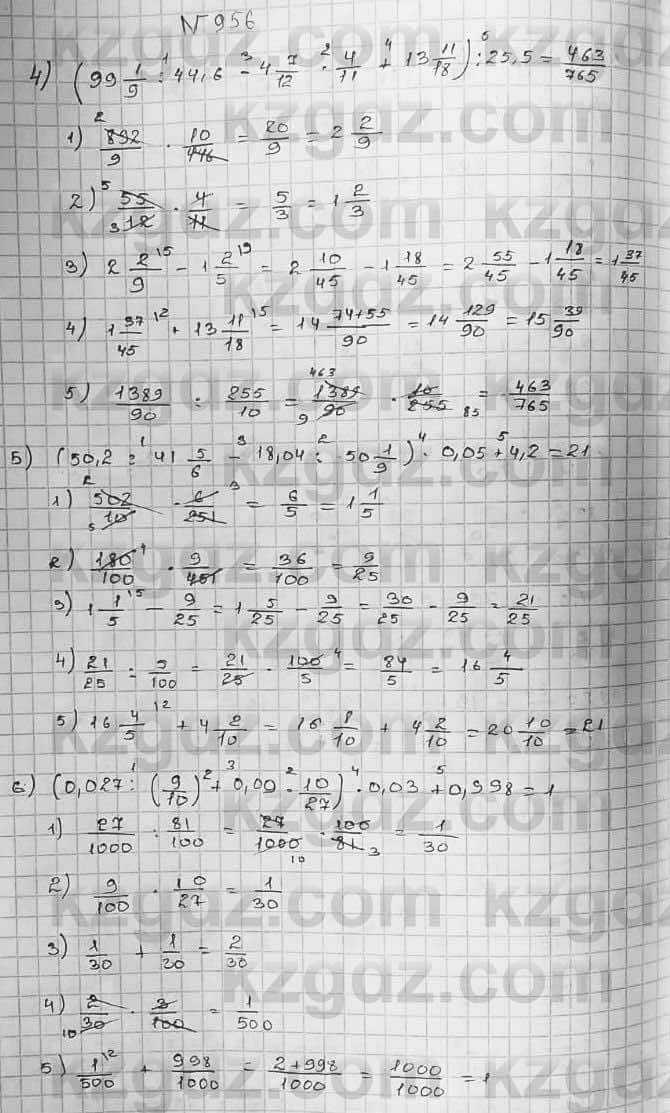 N 956
4) (99 1/9 : 44,6 - 4 7/12 · 4/11 + 13 11/18) : 25,5 = 463/765
1) 892/9 · 10/446 = 20/9 = 2 2/9
2) 55/12 · 4/11 = 5/3 = 1 2/3
3) 2 2/9 - 1 2/5 = 2 10/45 - 1 18/45 = 2 55/45 - 1 18/45 = 1 37/45
4) 1 37/45 + 13 11/18 = 14 74+55/90 = 14 129/90 = 15 39/90
5) 1389/90 : 255/10 = 1389/90 · 10/255 = 463/765
5) (50,2 : 41 5/6 - 18,04 : 50 1/9) · 0,05 + 4,2 = 21
1) 502/10 · 6/251 = 6/5 = 1 1/5
2) 180/100 · 9/451 = 36/100 = 9/25
3) 1 1/5 - 9/25 = 1 5/25 - 9/25 = 30/25 - 9/25 = 21/25
4) 21/25 : 5/100 = 21/25 · 100/5 = 84/5 = 16 4/5
5) 16 4/5 + 4 2/10 = 16 8/10 + 4 2/10 = 20 10/10 = 21
6) (0,027 : (9/10)² + 0,00 · 10/27) · 0,03 + 0,998 = 1
1) 27/1000 : 81/100 = 27/1000 · 100/81 = 1/30
2) 9/100 · 10/27 = 1/30
3) 1/30 + 1/30 = 2/30
4) 2/30 · 3/100 = 1/500
5) 1/500 + 998/1000 = 2+998/1000 = 1000/1000 = 1
kzgdz.com